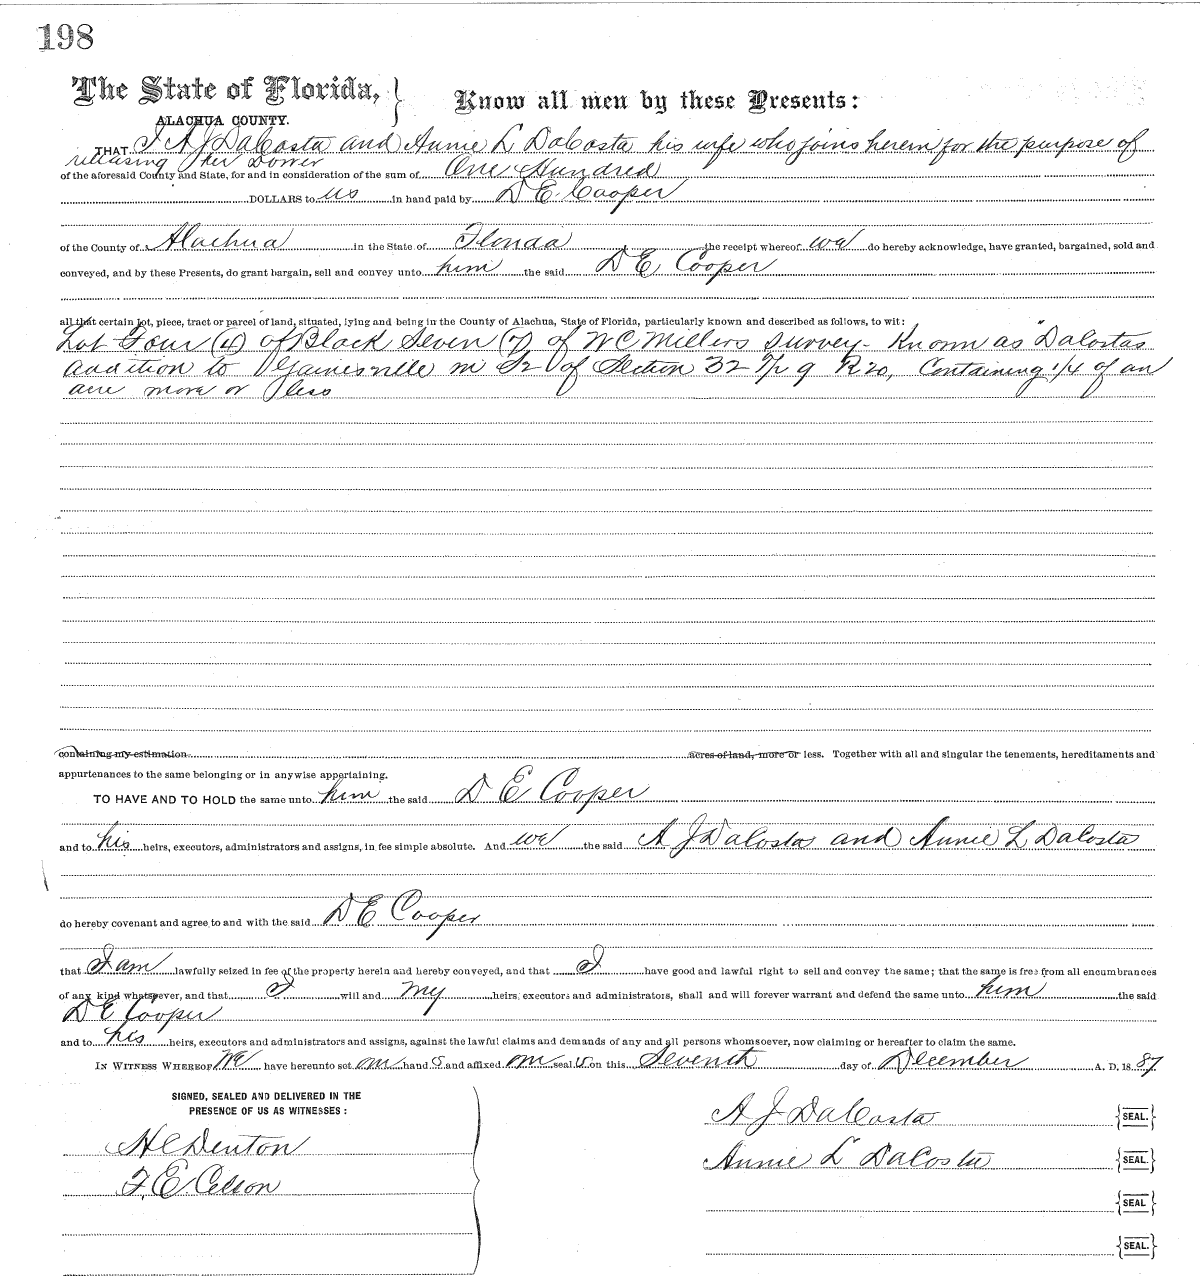 198
The State of Florida, } Know all men by these Presents:
ALACHUA COUNTY.
THAT I A J DaCosta and Annie L DaCosta his wife who joins herein for the purpose of
releasing her Dower
of the aforesaid County and State, for and in consideration of the sum of One Hundred
DOLLARS to us in hand paid by D E Cooper
of the County of Alachua in the State of Florida the receipt whereof we do hereby acknowledge, have granted, bargained, sold and
conveyed, and by these Presents, do grant bargain, sell and convey unto him the said D E Cooper
all that certain lot, piece, tract or parcel of land, situated, lying and being in the County of Alachua, State of Florida, particularly known and described as follows, to wit:
Lot Four (4) of Block Seven (7) of W C Millers survey - Known as "DaCostas
addition to Gainesville in of Section 32 Tp 9 R 20, Containing 1/4 of an
acre more or less
containing my estimation acres of land, more or less. Together with all and singular the tenements, hereditaments and
appurtenances to the same belonging or in anywise appertaining.
TO HAVE AND TO HOLD the same unto him the said D E Cooper
and to his heirs, executors, administrators and assigns, in fee simple absolute. And we the said A J DaCosta and Annie L DaCosta
do hereby covenant and agree to and with the said D E Cooper
that I am lawfully seized in fee of the property herein and hereby conveyed, and that I have good and lawful right to sell and convey the same; that the same is free from all encumbrances
of any kind whatsoever, and that I will and my heirs, executors and administrators, shall and will forever warrant and defend the same unto him the said
D E Cooper
and to his heirs, executors and administrators and assigns, against the lawful claims and demands of any and all persons whomsoever, now claiming or hereafter to claim the same.
IN WITNESS WHEREOF We have hereunto set our hand s and affixed our seal s on this Seventh day of December A. D. 18 87
SIGNED, SEALED AND DELIVERED IN THE
PRESENCE OF US AS WITNESSES:
A J DaCosta {SEAL.}
H C Denton
Annie L DaCosta {SEAL.}
F. E.
{SEAL}
{SEAL.}